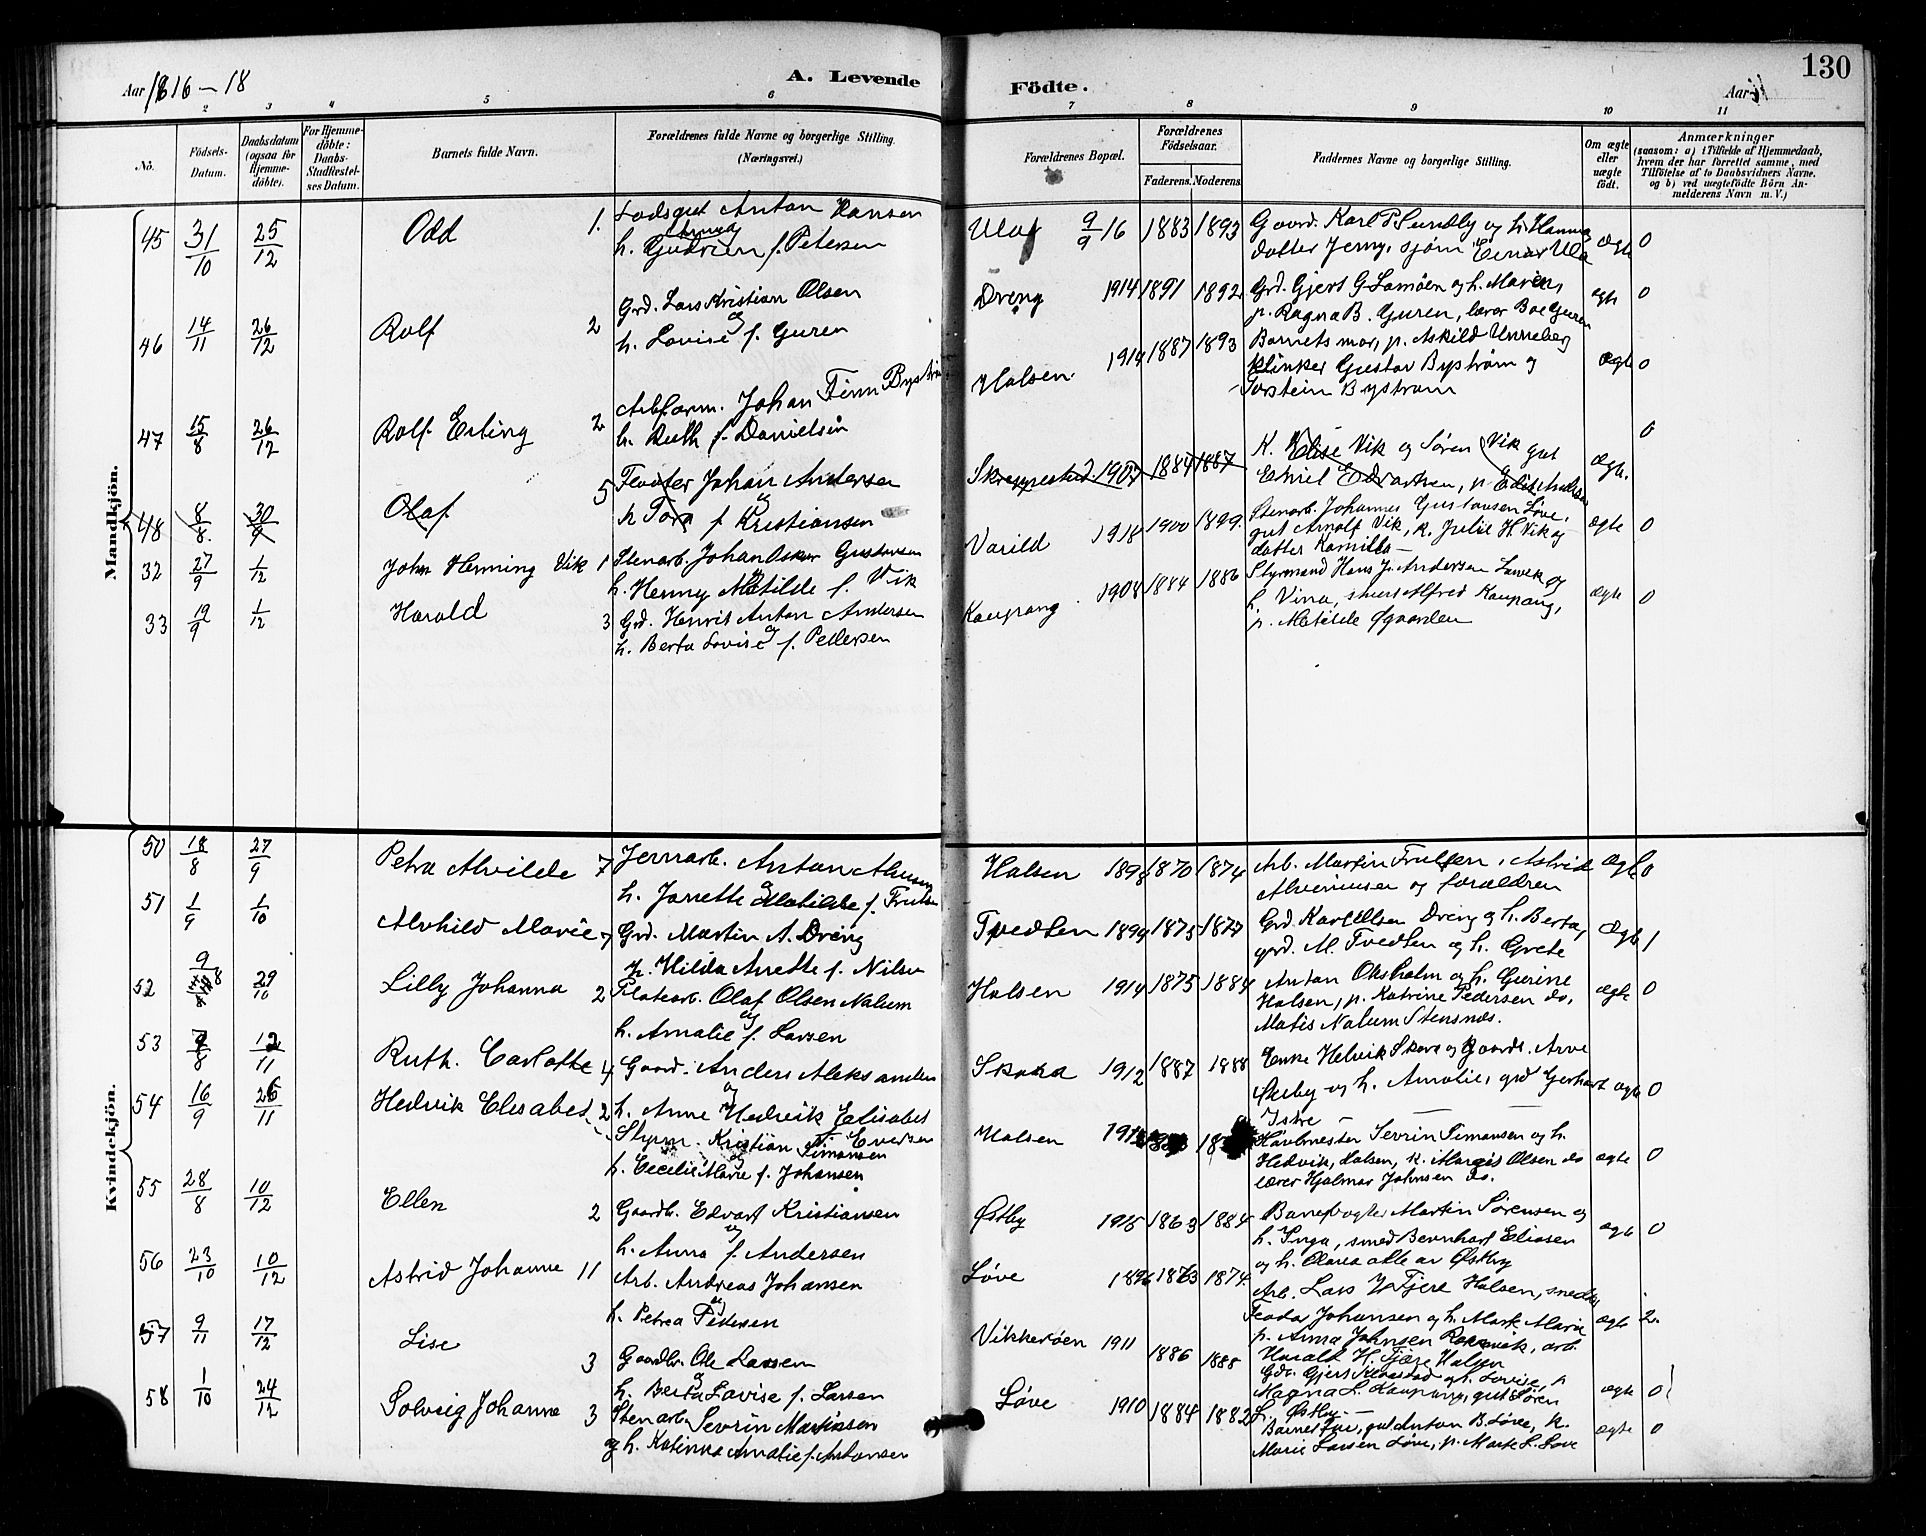 130
Aar 1916-18
A. Levende
Födte.
Aar
2 3 4 5 6 7 8 9 10 11
No.
Födsels-Datum.
Daabsdatum (ogsaa for Hjemme-döbte).
For Hjemme-döbte: Daabs-Stadfæstel-ses Datum.
Barnets fulde Navn.
Forældrenes fulde Navne og borgerlige Stilling. (Næringsvei.)
Forældrenes Bopæl.
Forældrenes Födselsaar.
Faderens. Moderens.
Faddernes Navne og borgerlige Stilling.
Om ægte eller uægte födt.
Anmærkninger
(saasom: a) i Tilfælde af Hjemmedaab, hvem der har forrettet samme, med Tilföielse af to Daabsvidners Navne, og b) ved uægtefödte Börn An-melderens Navn m. V.)
Mandkjön.
45 31/10 25/12 Odd 1. Lodsgut Anton Hansen
h. Gudrun f. Petersen
Ula 9/9 16 1883 1893 Gaard. Karl P. Sundby og h. Hanna
datter Jenny, sjøm Einar Ula ægte 0
46 14/11 26/12 Rolf 2 Grd. Lars Kristian Olsen
og
h. Lovise f. Guren
Dreng 1914 1891 1892 Grd. Gjert G. Lamøen og h. Maren,
p. Ragna B. Guren, lærer Boe Guren ægte 0
47 15/8 26/12 Rolf Erling 2 Arbform. Johan Finn Bystrøm
h. Ruth f. Danielsen
Halsen 1914 1887 1893 Barnets mor, p. Askild Unneberg
klinker Gustav Bystrøm og
Torstein Bystrøm ægte 0
48 8/8 30/9 Olaf 5 Fløter Johan Andersen
og
h Tora f Kristiansen
Skreppestad 1907 1884 1887 K. Elise Vik og Søren Vik gut
Emil Edvartsen, p Edit Andersen ægte. 0
32 27/9 1/12 John Henning Vik 1 Stenarb. Johan Oskar Gustavsen
h. Henny Matilde f. Vik
Varild 1918 1900 1899 Stenarb. Johannes Gustavsen Løve,
gut Arnolf Vik, k. Julie H. Vik og
datter Kamilla — ægte 0
33 19/9 1/12 Harald 3 Grd. Henrik Anton Andersen
og
h. Berta Lovise f. Pedersen
Kaupang 1908 1884 1886 Styrmand Hans J. Andersen Lavek og
h. Vina, Alfred Kaupang,
p. Matilde Øgaarden ægte 0
Kvindekjön.
50 18/8 27/9 Petra Alvilde 7 Jernarb. Anton Alver
og
h. Janette Matilde f. Trulsen
Halsen 1898 1870 1874 Arb. Martin Trulsen, Astrid
og forældren ægte 0
51 1/9 1/10 Alvhild Marie 7 Grd. Martin A. Dreng
h. Hilda Anette f. Nilsen
Tvedten 1899 1875 1877 Grd. Karl Olsen Dreng og h. Berta,
grd. M. Tvedten og h. Grete ægte 1
52 9/8 29/10 Lilly Johanna 2 Platearb. Olaf Olsen Nalum
og
h. Amalie f. Larsen
Halsen 1914 1875 1884 Anton Oksholm og h. Gurine
Halsen, p. Katrine Pedersen do.
Matis Nalum Stensnæs. ægte 0
53 7/8 12/11 Ruth. Carlotte 4 Gaard. Anders Aleksandersen
og
h. Anne Hedvik Elisabet
Skara 1912 1887 1888 Enke Helvik Skara og Gaardb. Arve
og h. Amalie, grd Gerhart
Istre — ægte 0
54 16/9 26/11 Hedvik Elisabet 2 Styrm. Kristian Simonsen
h. Cecelie Marie f. Johansen
Halsen Havnmester Sevrin Simonsen og h.
Hedvik, Halsen, k. Margis Olsen do
lærer Hjalmar Johnsen do. ægte 0
55 28/8 10/12 Ellen 2 Gaardb. Edvart Kristiansen
og
h. Anna f. Andersen
Østby 1915 1863 1884 Banevogter Martin Sørensen og
h. Inga, smed Bernhart Eliasen
og h. Olava alle av Østby ægte 0
56 23/10 10/12 Astrid Johanne 11 Arb. Andreas Johansen
og
h. Petrea Pedersen
Løve 1896 1873 1874 Arb. Lars H. Fjære Halsen, smed
Teodor Johansen og h. Mark Marie
p. Anna Johnsen Rakevik, arb.
Harald H. Fjære Halsen ægte 2.
57 9/11 17/12 Lise 3 Gaardbr. Ole Larsen
og
h. Berta Lovise f. Larsen
Vikkerøen 1911 1886 1888 Gdr. Gjert Klaastad og h. Lovise, p
Magna L. Kaupang, gut Søren
L. Østby — ægte 0
58 1/10 24/12 Solveig Johanna 3 Stenarb. Sevrin Martinsen
og h. Katinka Amalie f. Antonsen
Løve 1910 1884 1882 Barnets far, gut Anton B. Løve, k.
Marie Larsen Løve, p. Marte L. Løve ægte 0